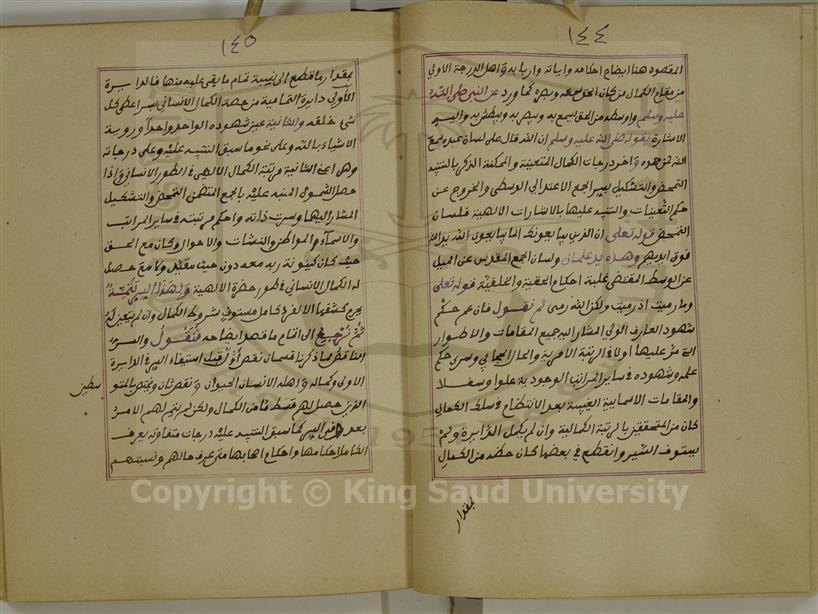 ١٤٤
المقصود هنا ايضاح احكامه وآياته واربابه واهل الدرجة الاولى
من مقام الكمال من كان الحق سمعه وبصره كما ورد عن النبي صلى الله
عليه وسلم واوسطه من الحق يسمع به ويبصر به ويبطش به واليه
الاشارة بقوله صلى الله عليه وسلم ان الله قال على لسان عبده سمع
الله لمن حمده وآخر درجات الكمال المتعينة
التمحض والتشكيك يسير الجمع الاعتدالي الوسطى والخروج عن
حكم التعينات والتنبيه عليها بالاشارات الالهية فلسان
التمحض قوله تعالى ان الذين يبايعونك انما يبايعون الله يد الله
فوق ايديهم وهذه يد عثمان ولسان الجمع المقدس عن الميل
عن الوسط المقتضى غلبة احكام الحقية والخلقية قوله تعالى
وما رميت اذ رميت ولكن الله رمى ثم نقول فان عم حكم
شهود العارف الولي المشار اليه جميع المقامات والاطوار
التي مر عليها اولا في الرتبة
علمه وشهوده في ساير المراتب الوجودية علوا وسفلا
والمقامات الاسمائية الغيبية بعد الانتظام في سلك الكمال
كان من المتحققين بالرتبة الكمالية وان لم يكمل الدائرة ولم
يستوف السير وانقطع في بعضها كان حظه من الكمال
بمقدار
١٤٥
بمقدار ما قطع الى نسبة تمام ما بقي عليه منها فالدايرة
الاولى دايرة التمامية من حصة الكمال الانساني سر اعطى كل
شئ خلقه والثانية عين شهوده الواحد واحدا ورؤية
الاشياء بالله وعلى نحو ما سبق التنبيه عليه وعلى درجاته
وهي اعني الثانية مرتبة الكمال الالهي في الطور الانساني واذا
حصل الشمول المنبه عليه بالجمع المتضمن التمحض والتشكيك
المشار اليها وسرت ذاته واحكام مرتبته في ساير المراتب
والاسماء والمواطن والنشآت والاحوال وكان مع الحق
حيث كان كينونة ربه معه دون حيث مقيد ولا مع حصل
له الكمال الانساني في طور حضرة الالهية ولهذا السير تتمة
يحرم كشفها الا لفرد كامل مستوف شروط الكمال وان لم يتعين له
ثم نرجع الى اتمام ما قصد ايضاحه فنقول والسر
الناقص مما ذكرنا قسمان نقص اول قبل استيفاء السير في الدايرة
الاولى وكماله واهله الانسان الحيوان ونقص ثان ويختص بالمتوسطين
الذين حصل لهم قسط ما من الكمال ولكن لم يتم لهم الامر
بعد في السير كما سبق التنبيه عليه درجات متفاوتة يعرف
الكامل احكامها واحكام اهلها متى عرف حالهم ونسبتهم
Copyright © King Saud University